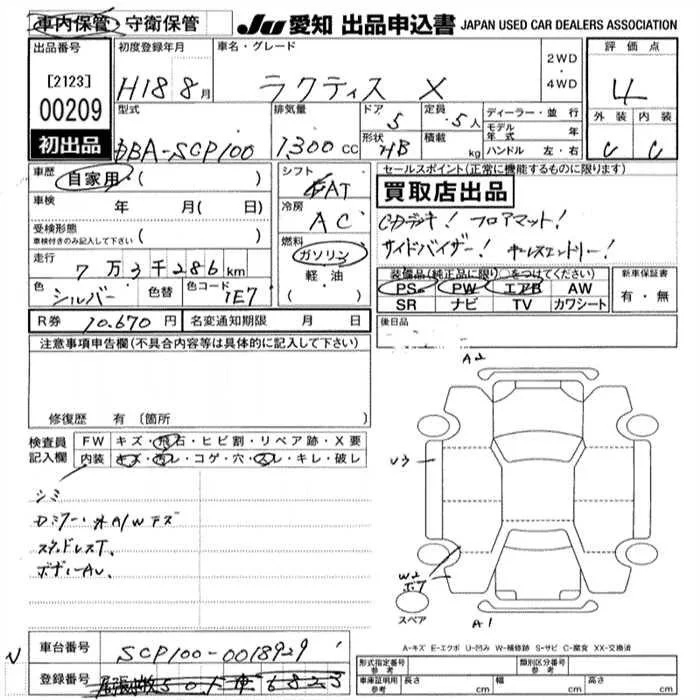 車内保管・守衛保管 JU 愛知 出品申込書 JAPAN USED CAR DEALERS ASSOCIATION
出品番号 初度登録年月 車名・グレード 2WD・4WD 評価点
[2123] H18 8月 ラクティス X 4
00209 型式 排気量 ドア 5 定員 ・5人 ディーラー・並行 外装 内装
初出品 DBA-SCP100 1300 CC 形状 HB 積載 kg モデル年式 年 C C
ハンドル 左・右
車歴 自家用・( ) シフト FAT セールスポイント(正常に機能するものに限ります)
車検 年 月( 日) 冷房 AC 買取店出品
受検形態 車検付きのみ記入して下さい ( ) CDデッキ! フロアマット!
走行 7万3千286km 燃料 ガソリン・軽油・( ) サイドバイザー! キーレスエントリー!
色 シルバー 色替 色コード 1E7 装備品(純正品に限り)○をつけてください 新車保証書
PS PW エアB AW 有・無
SR ナビ TV カワシート
R券 10.670円 名変通知期限 月 日 後日品
注意事項申告欄(不具合内容等は具体的に記入して下さい)
修復歴 有 [箇所 ]
検査員記入欄 FW キズ・飛石・ヒビ割・リペア跡・X要
内装 キズ・汚レ・コゲ・穴・スレ・キレ・破レ
シミ
Dミラー・外A/Wキズ
スタッドレスT、
ボディーAU、
A2
U3
W2
ボフ
A1
スペア
A-キズ E-エクボ U-凹み W-補修跡 S-サビ C-腐食 XX-交換済
N 車台番号 SCP100-0018929
登録番号
形式指定番号 参考 類別区分番号 参考
車庫証明用 参考 長さ cm 幅 cm 高さ cm